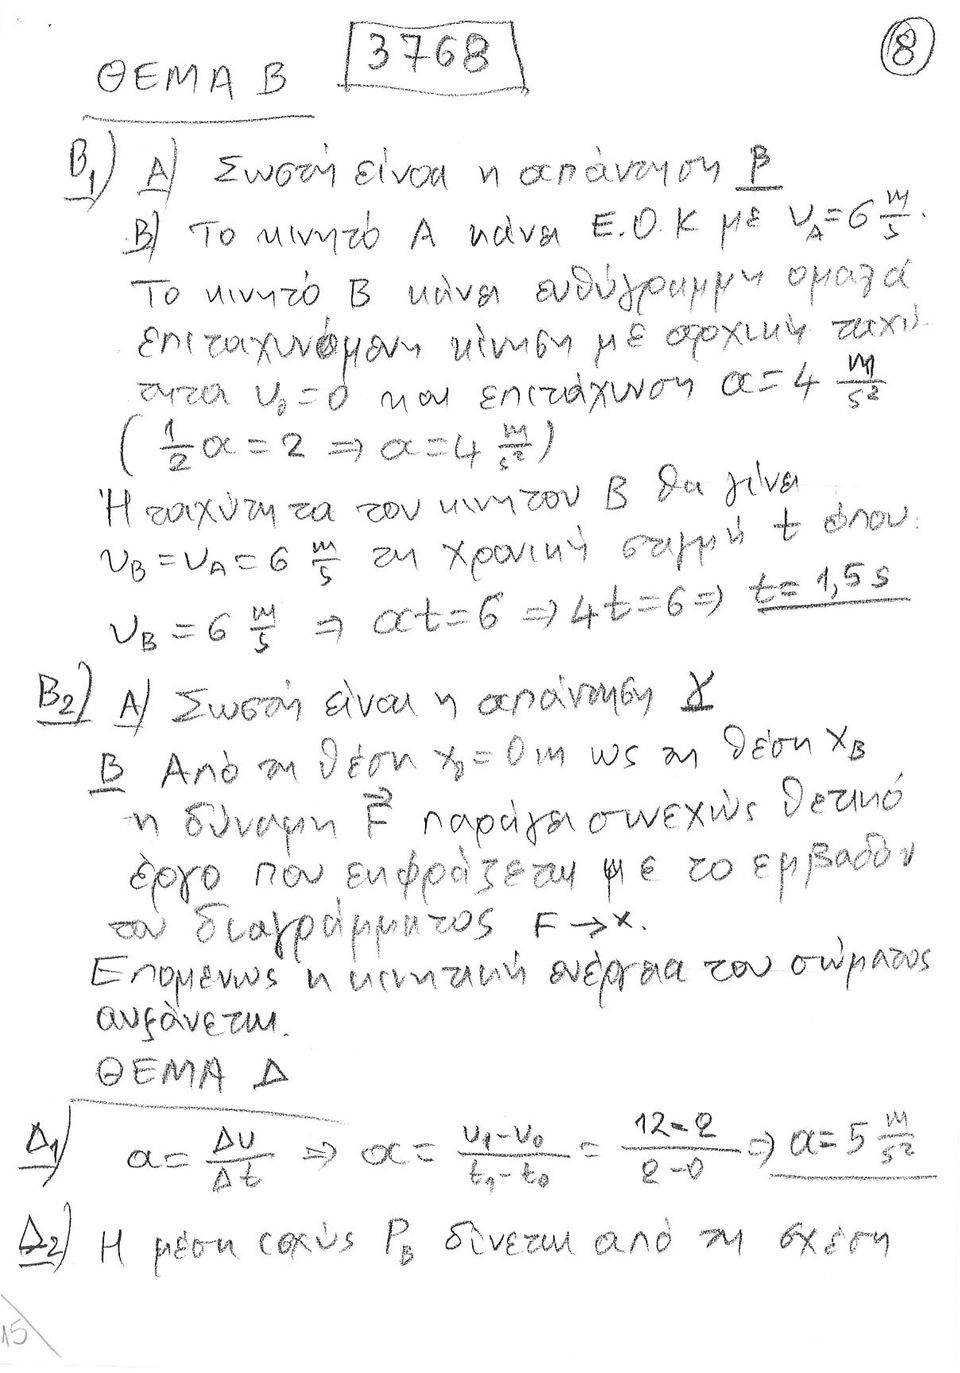 ΘΕΜΑ Β 3768 8
Β1) Α) Σωστή είναι η απάντηση β
Β) Το κινητό Α κάνει Ε.Ο.Κ με υA=6 m/s.
Το κινητό Β κάνει ευθύγραμμη ομαλά
επιταχυνόμενη κίνηση με αρχική ταχύ-
τητα υ0=0 και επιτάχυνση α=4 m/s²
(1/2 α=2 ⇒ α=4 m/s²)
Η ταχύτητα του κινητού Β θα γίνει
υB=υA=6 m/s τη χρονική στιγμή t όπου:
υB=6 m/s ⇒ αt=6 ⇒ 4t=6 ⇒ t=1,5s
Β2) Α) Σωστή είναι η απάντηση γ
Β Από τη θέση x0=0m ως τη θέση xB
η δύναμη F⃗ παράγει συνεχώς θετικό
έργο που εκφράζεται με το εμβαδόν
του διαγράμματος F→x.
Επομένως η κινητική ενέργεια του σώματος
αυξάνεται.
ΘΕΜΑ Δ
Δ1) α=Δυ/Δt ⇒ α=(υ1-υ0)/(t1-t0)=(12-2)/(2-0) ⇒ α=5 m/s²
Δ2) Η μέση ισχύς PB δίνεται από τη σχέση
15